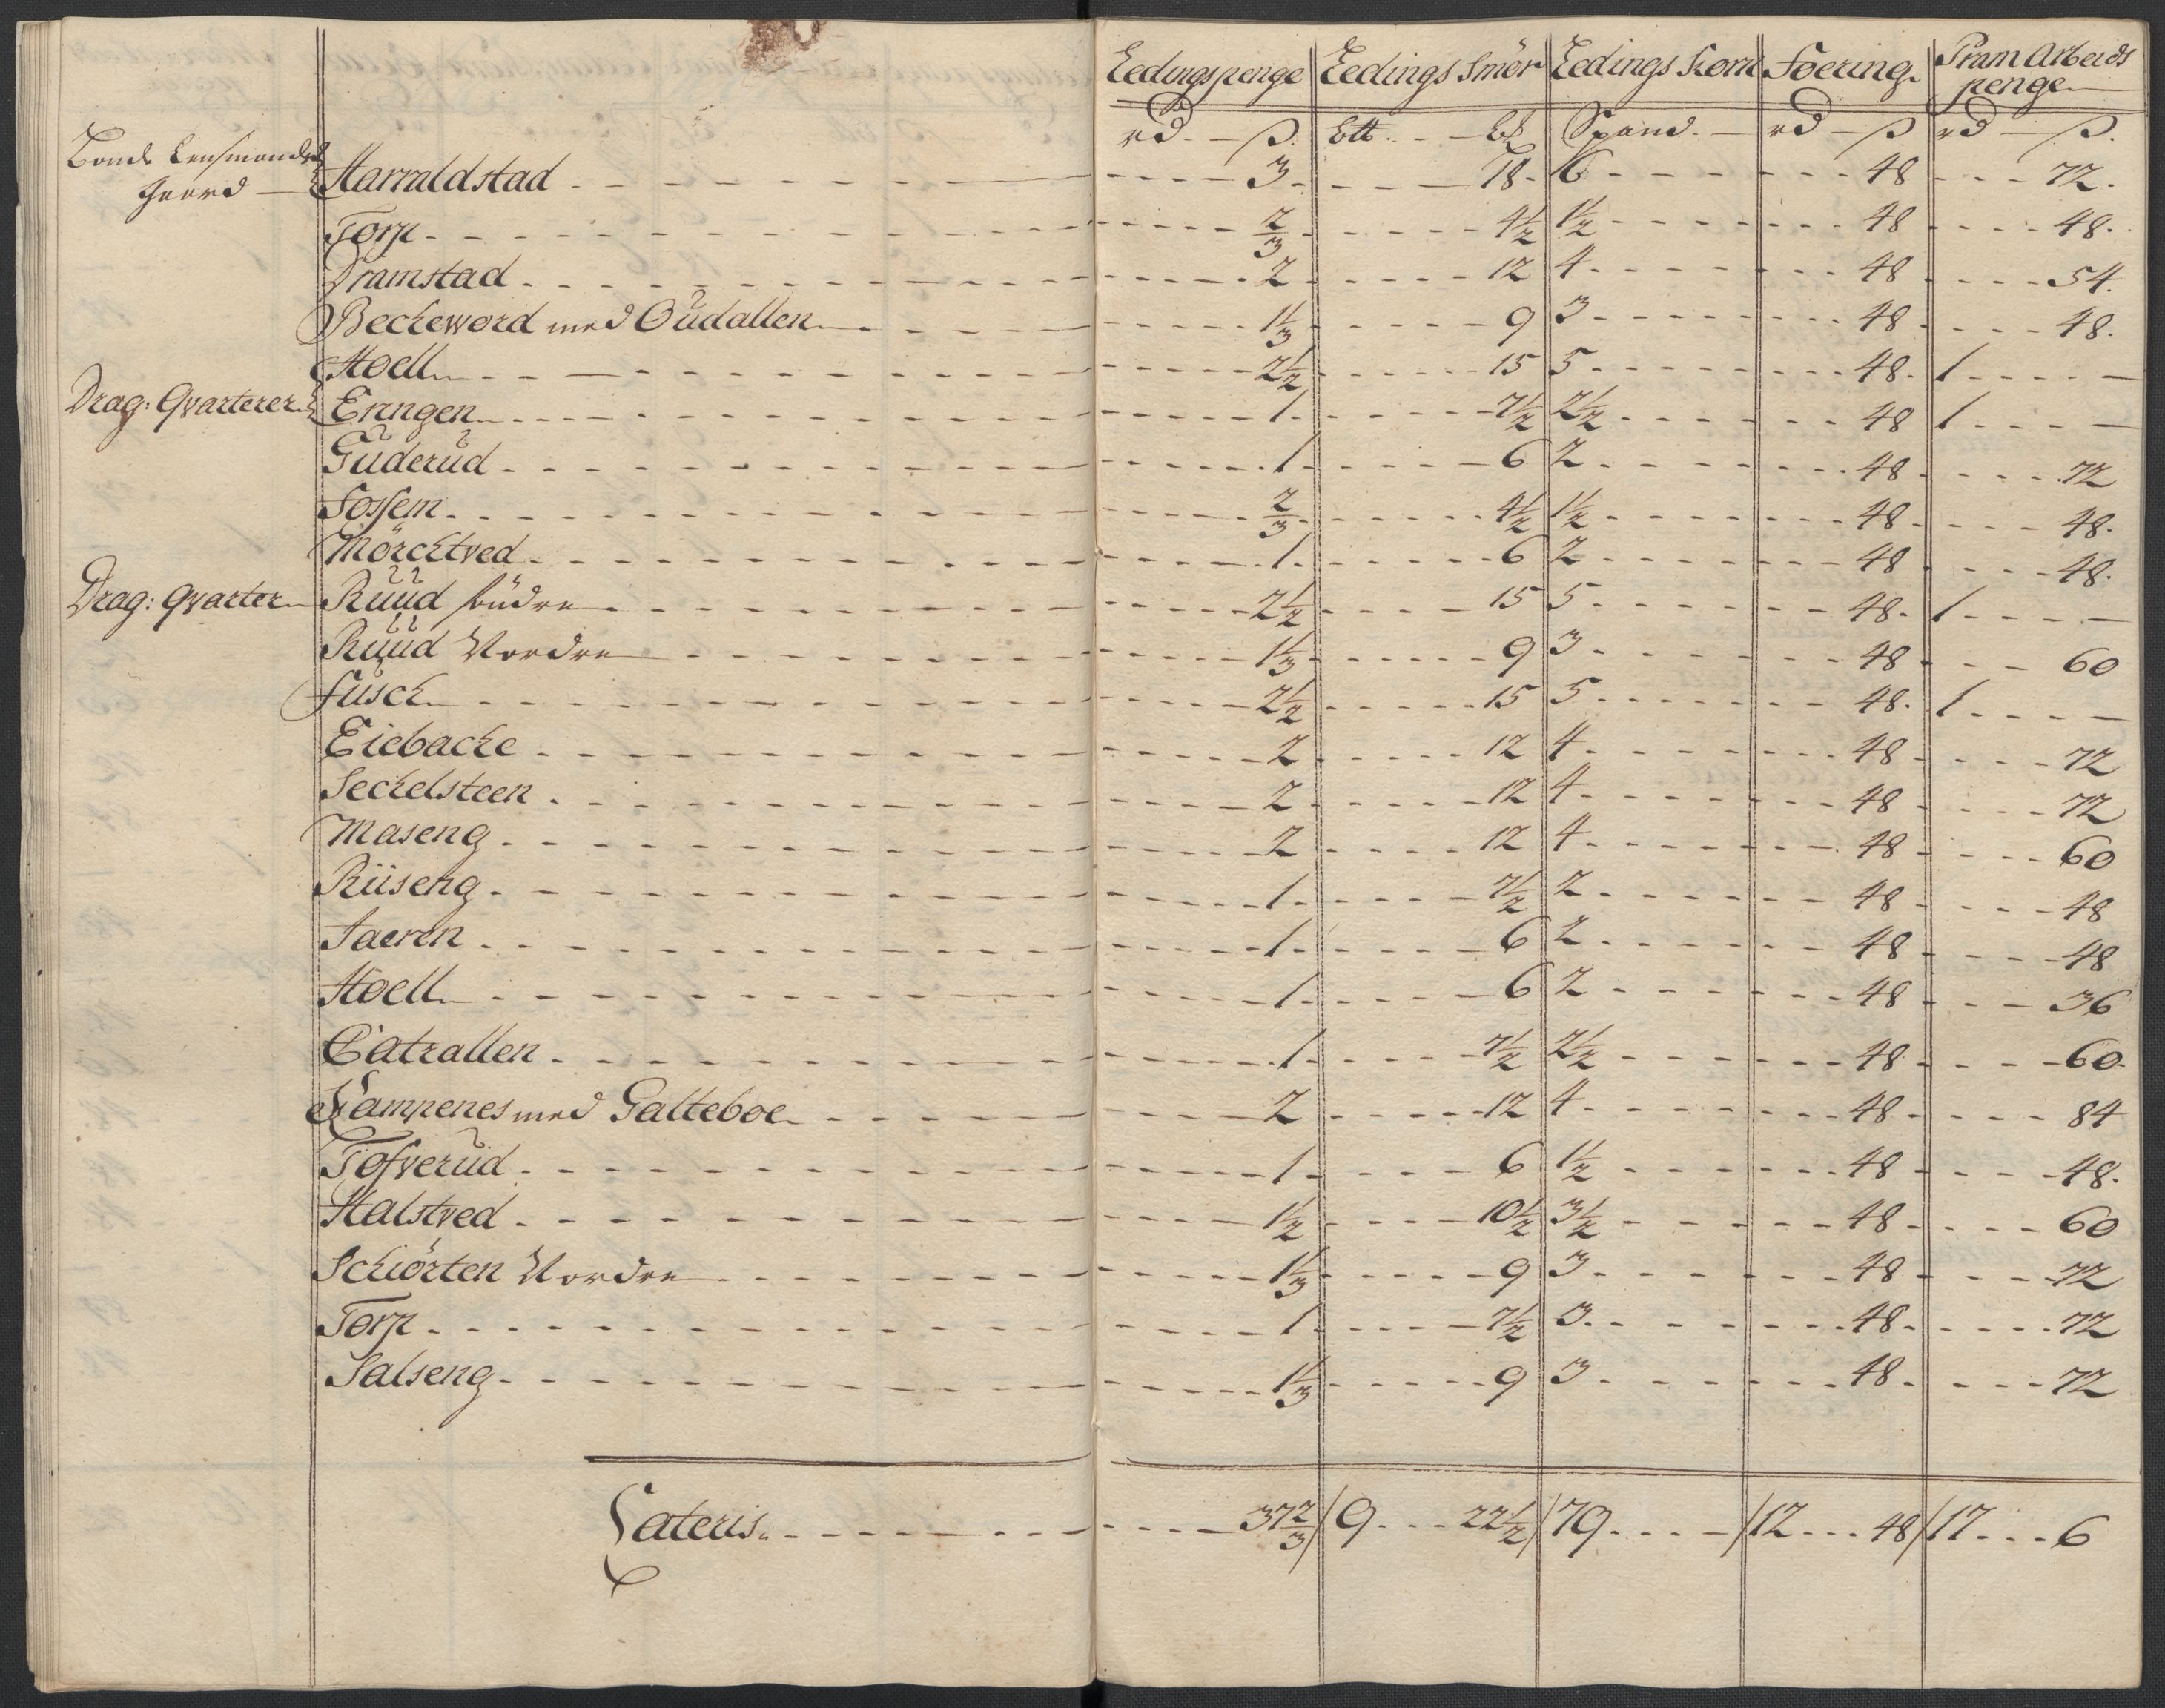 Ledingspenge Ledings Smör Ledings Korn Foering Pram Arbeids penge
rd. — ß. Btt. — Spand. — rd — ß rd — ß.
Bonde Lensmands
gaard — Harraldstad 3 18 6 48 72.
Torp 2/3 4 1/2 1 1/2 48 48.
Dramstad 2 12 4 48 54.
Becheword med Oudallen 1 1/3 9 3 48 48.
Hoell 2 1/2 15 5 48. 1 —
Drag: Qvarterer Eringen 1 7 1/2 2 1/2 48 1 —
Guderud 1 6 2 48 72
Fossem 2/3 4 1/2 1 1/2 48 48.
Mörchtved 1 6 2 48 48.
Drag: qvarter Ruud Söndre 2 1/2 15 5 48. 1 —
Ruud Nordre 1 1/3 9 3 48 60
Fusch 2 1/2 15 5 48. 1 —
Eiebacke 2 12 4 48 72
Seckelsteen 2 12 4 48 72
Maseng 2 12 4 48 60
Riiseng 1 7 1/2 2 48 48
Jaeren 1 6 2 48 48
Hoell 1 6 2 48 36
Catrallen 1 7 1/2 2 1/2 48 60
Kampenes med Galteboe 2 12 4 48 84
Tofverud 1 6 1 1/2 48 48.
Halstved 1 1/2 10 1/2 3 1/2 48 60
Schiörten Nordre 1 1/3 9 3 48 72
Torp 1 7 1/2 3 48 72
Salseng 1 1/3 9 3 48 72
Lateris 37 2/3 / 9 22 1/2 / 79 — / 12 48 / 17 6